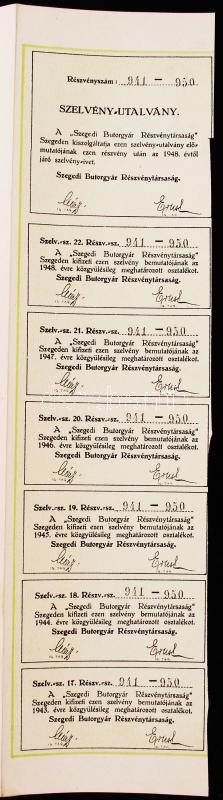 Részvényszám: 941 — 950
SZELVÉNY-UTALVÁNY.
A „Szegedi Butorgyár Részvénytársaság"
Szegeden kiszolgáltatja ezen szelvény-utalvány elő-
mutatójának ezen részvény után az 1948. évtől
járó szelvény-ivet.
Szegedi Butorgyár Részvénytársaság.
Szelv.-sz. 22. Részv.-sz. 941 — 950
A „Szegedi Butorgyár Részvénytársaság"
Szegeden kifizeti ezen szelvény bemutatójának az
1948. évre közgyülésileg meghatározott osztalékot.
Szegedi Butorgyár Részvénytársaság.
Szelv.-sz. 21. Részv.-sz. 941 — 950
A „Szegedi Butorgyár Részvénytársaság"
Szegeden kifizeti ezen szelvény bemutatójának az
1947. évre közgyülésileg meghatározott osztalékot.
Szegedi Butorgyár Részvénytársaság.
Szelv.-sz. 20. Részv.-sz. 941 — 950
A „Szegedi Butorgyár Részvénytársaság"
Szegeden kifizeti ezen szelvény bemutatójának az
1946. évre közgyülésileg meghatározott osztalékot.
Szegedi Butorgyár Részvénytársaság.
Szelv.-sz. 19. Részv.-sz. 941 — 950
A „Szegedi Butorgyár Részvénytársaság"
Szegeden kifizeti ezen szelvény bemutatójának az
1945. évre közgyülésileg meghatározott osztalékot.
Szegedi Butorgyár Részvénytársaság.
Szelv.-sz. 18. Részv.-sz. 941 — 950
A „Szegedi Butorgyár Részvénytársaság"
Szegeden kifizeti ezen szelvény bemutatójának az
1944. évre közgyülésileg meghatározott osztalékot.
Szegedi Butorgyár Részvénytársaság.
Szelv.-sz. 17. Részv.-sz. 941 — 950
A „Szegedi Butorgyár Részvénytársaság"
Szegeden kifizeti ezen szelvény bemutatójának az
1943. évre közgyülésileg meghatározott osztalékot.
Szegedi Butorgyár Részvénytársaság.